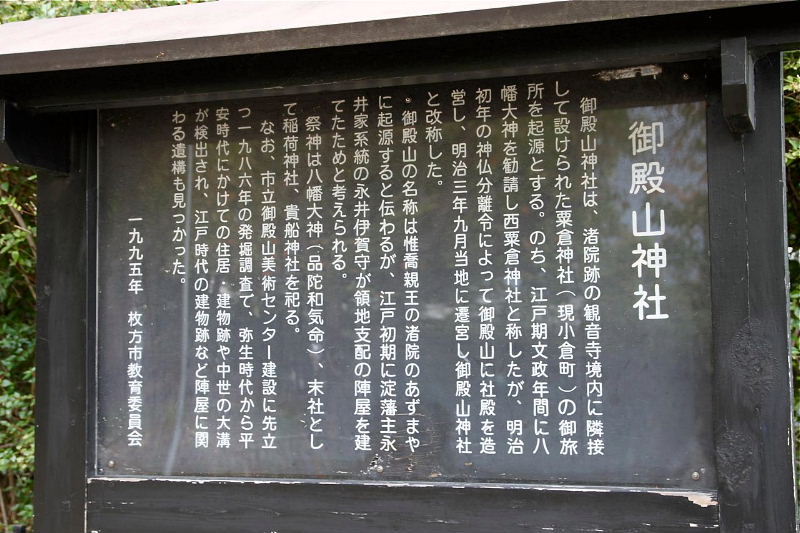 御殿山神社
御殿山神社は、渚院跡の観音寺境内に隣接
して設けられた粟倉神社(現小倉町)の御旅
所を起源とする。のち、江戸期文政年間に八
幡大神を勧請し西粟倉神社と称したが、明治
初年の神仏分離令によって御殿山に社殿を造
営し、明治三年九月当地に遷宮し御殿山神社
と改称した。
御殿山の名称は惟喬親王の渚院のあずまや
に起源すると伝わるが、江戸初期に淀藩主永
井家系統の永井伊賀守が領地支配の陣屋を建
てたためと考えられる。
祭神は八幡大神(品陀和気命)、末社とし
て稲荷神社、貴船神社を祀る。
なお、市立御殿山美術センター建設に先立
つ一九八六年の発掘調査で、弥生時代から平
安時代にかけての住居・建物跡や中世の大溝
が検出され、江戸時代の建物跡など陣屋に関
わる遺構も見つかった。
一九九五年 枚方市教育委員会